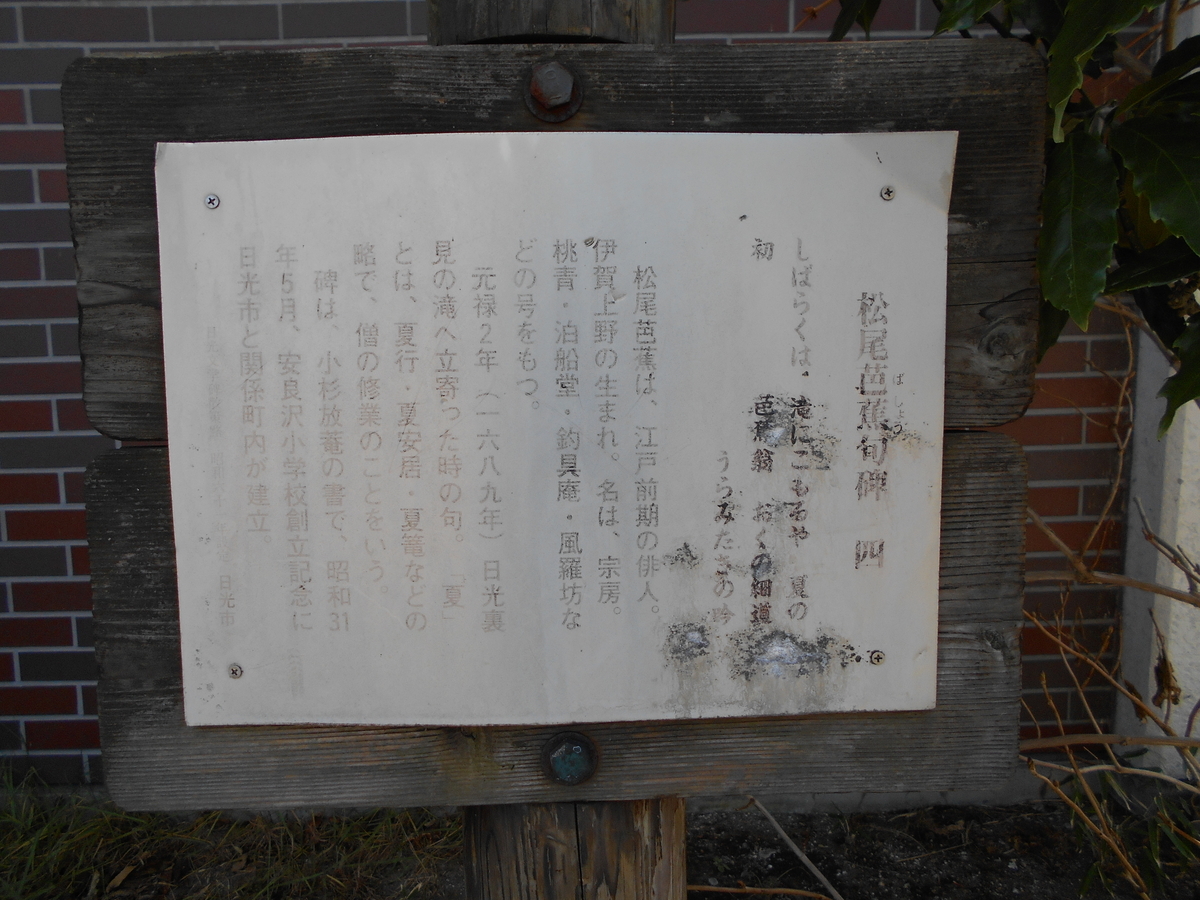 松尾芭蕉句碑 四
ばしょう
しばらくは、滝にこもるや 夏の
初
芭蕉翁 おくの細道
うらみたきの吟
松尾芭蕉は、江戸前期の俳人。
伊賀上野の生まれ。名は、宗房。
桃青・泊船堂・釣月庵・風羅坊な
どの号をもつ。
元禄2年(一六八九年)日光裏
見の滝へ立寄った時の句。「夏」
とは、夏行・夏安居・夏篭などの
略で、僧の修業のことをいう。
碑は、小杉放菴の書で、昭和31
年5月、安良沢小学校創立記念に
日光市と関係町内が建立。
日光市